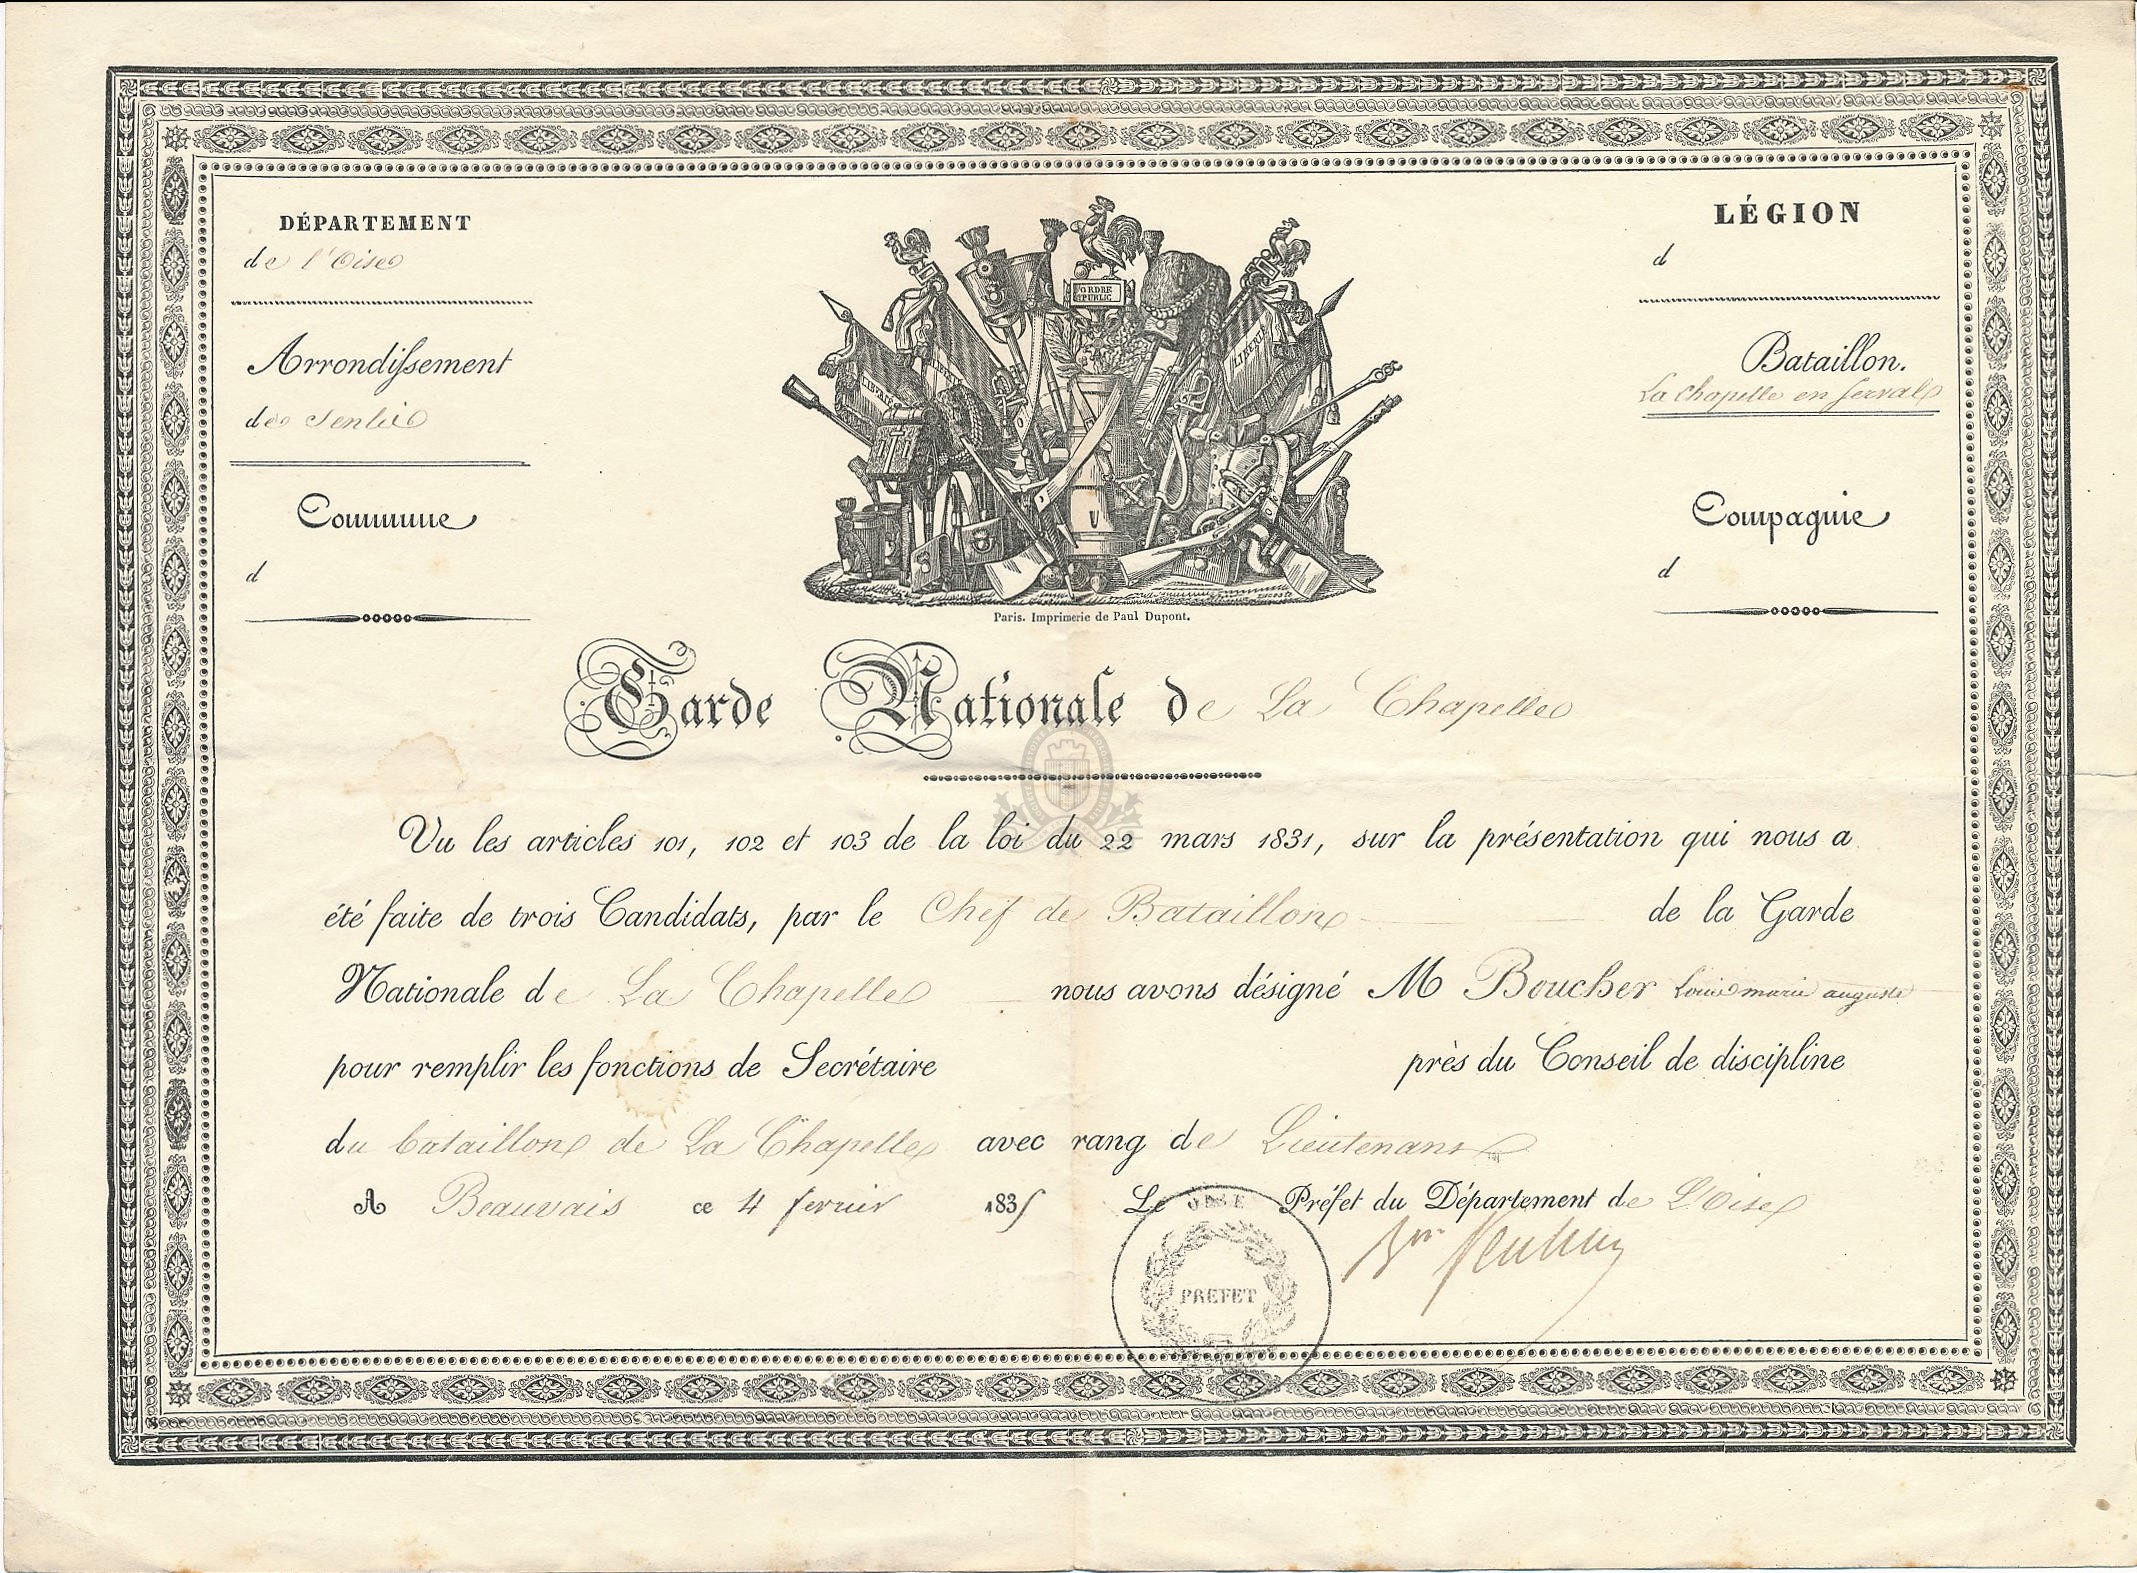 DÉPARTEMENT
de l'Oise
Arrondissement
de Senlis
Commune
d
ORDRE
PUBLIC
LIBERTÉ
LIBERTÉ
LIBERTÉ
Paris. Imprimerie de Paul Dupont.
LÉGION
d
Bataillon.
La Chapelle en Serval
Compagnie
d
Garde Nationale de La Chapelle
Vu les articles 101, 102 et 103 de la loi du 22 mars 1831, sur la présentation qui nous a
été faite de trois Candidats, par le Chef de Bataillon de la Garde
Nationale de La Chapelle nous avons désigné M Boucher Louis marie auguste
pour remplir les fonctions de Secrétaire près du Conseil de discipline
du bataillon de La Chapelle avec rang de Lieutenant
A Beauvais ce 4 fevrier 1835 Le Préfet du Département de L'Oise
OISE
PREFET